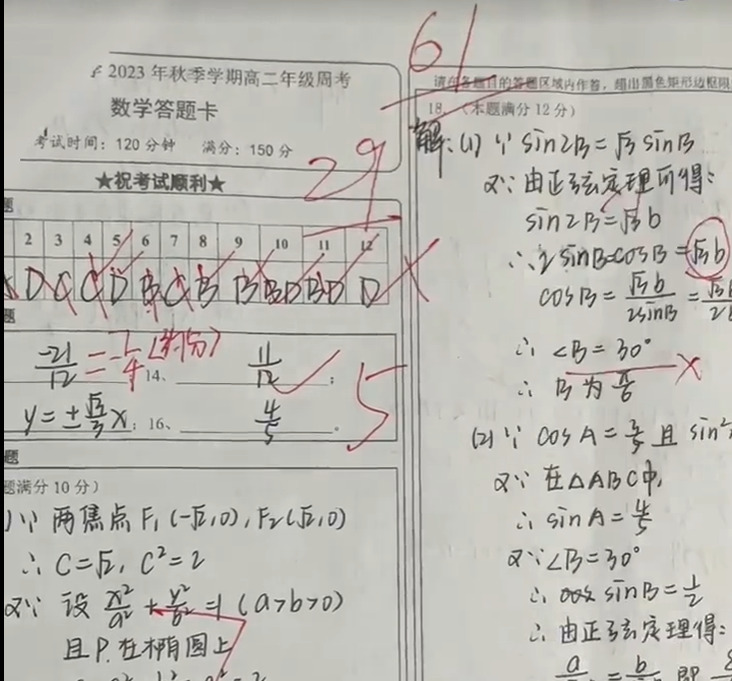 2023年秋季学期高二年级周考
数学答题卡
考试时间：120分钟 满分：150分
★祝考试顺利★
29
题
2 3 4 5 6 7 8 9 10 11 12
D C C D B C B B BD BD D
题
-21/12 = -7/4 (约分) 14、 11/12 ；
y=±√3/3 x；16、 4/5 。
5
题
题满分10分）
∵两焦点F₁(-√2,0),F₂(√2,0)
∴C=√2, C²=2
又∵设x²/a²+y²/b²=1(a>b>0)
且P.在椭圆上
61
请在各题目的答题区域内作答，超出黑色矩形边框限
18.（本题满分12分）
解:(1)∵sin2B=√3sinB
又∵由正弦定理可得:
sin2B=√3b
∴2sinB·cosB=√3b
cosB=√3b/2sinB=
∴∠B=30°
∴B为π/6
(2)∵cosA=3/5且sin²
又∵在△ABC中,
∴sinA=4/5
又∵∠B=30°
∴sinB=1/2
∴由正弦定理得:
a = b 即